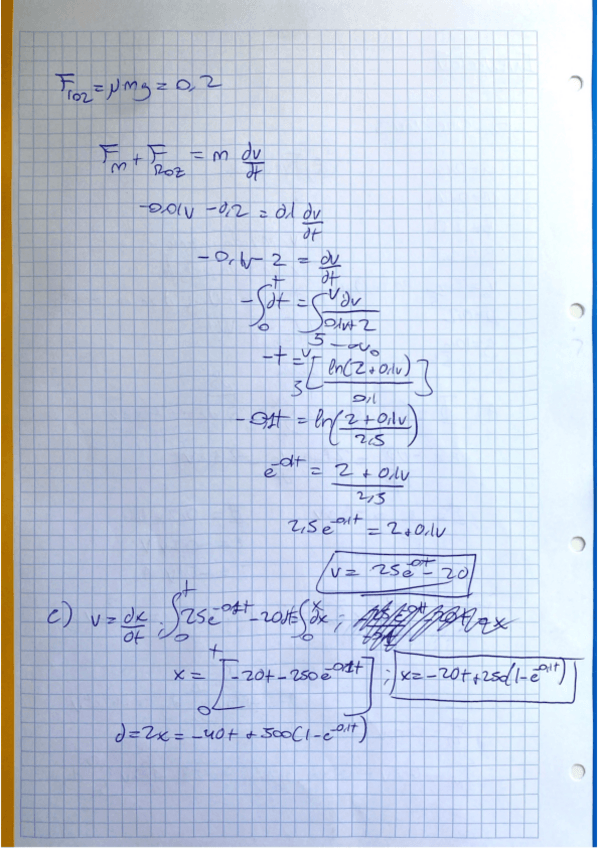 F_roz = μmg = 0,2
F_m + F_roz = m dv/dt
-0.01v - 0,2 = 0,1 dv/dt
-0,1v - 2 = dv/dt
-∫₀ᵗ dt = ∫₅ᵛ dv/(0,1v+2)
5 → v₀
-t = ₅ᵛ[ln(2+0,1v)/0,1]
-0,1t = ln((2+0,1v)/2,5)
e^(-0,1t) = (2+0,1v)/2,5
2,5e^(-0,1t) = 2+0,1v
v = 25e^(-0,1t) - 20
c) v = dx/dt ; ∫₀ᵗ 25e^(-0,1t) - 20dt = ∫₀ˣ dx ;
x = ₀ᵗ[-20t - 250e^(-0,1t)] ; x = -20t + 250(1-e^(-0,1t))
d = 2x = -40t + 500(1-e^(-0,1t))